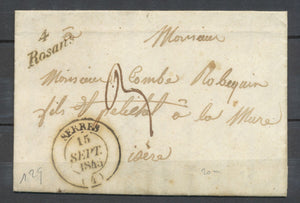 4
Rosans
Monsieur
Monsieur Combe
fils à la Mure
isère
SERRES
15
SEPT.
1845
(4)
129